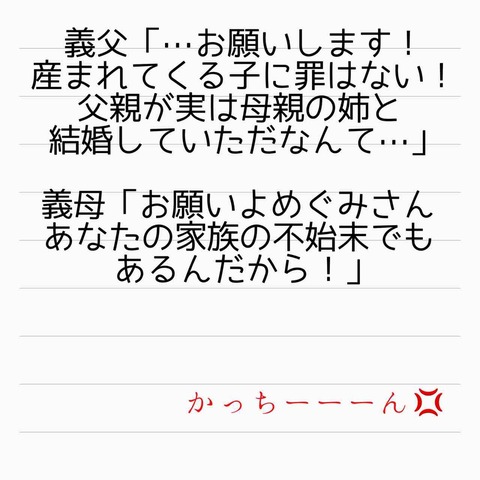 義父「…お願いします！
産まれてくる子に罪はない！
父親が実は母親の姉と
結婚していただなんて…」
義母「お願いよめぐみさん
あなたの家族の不始末でも
あるんだから！」
かっちーーーん💢